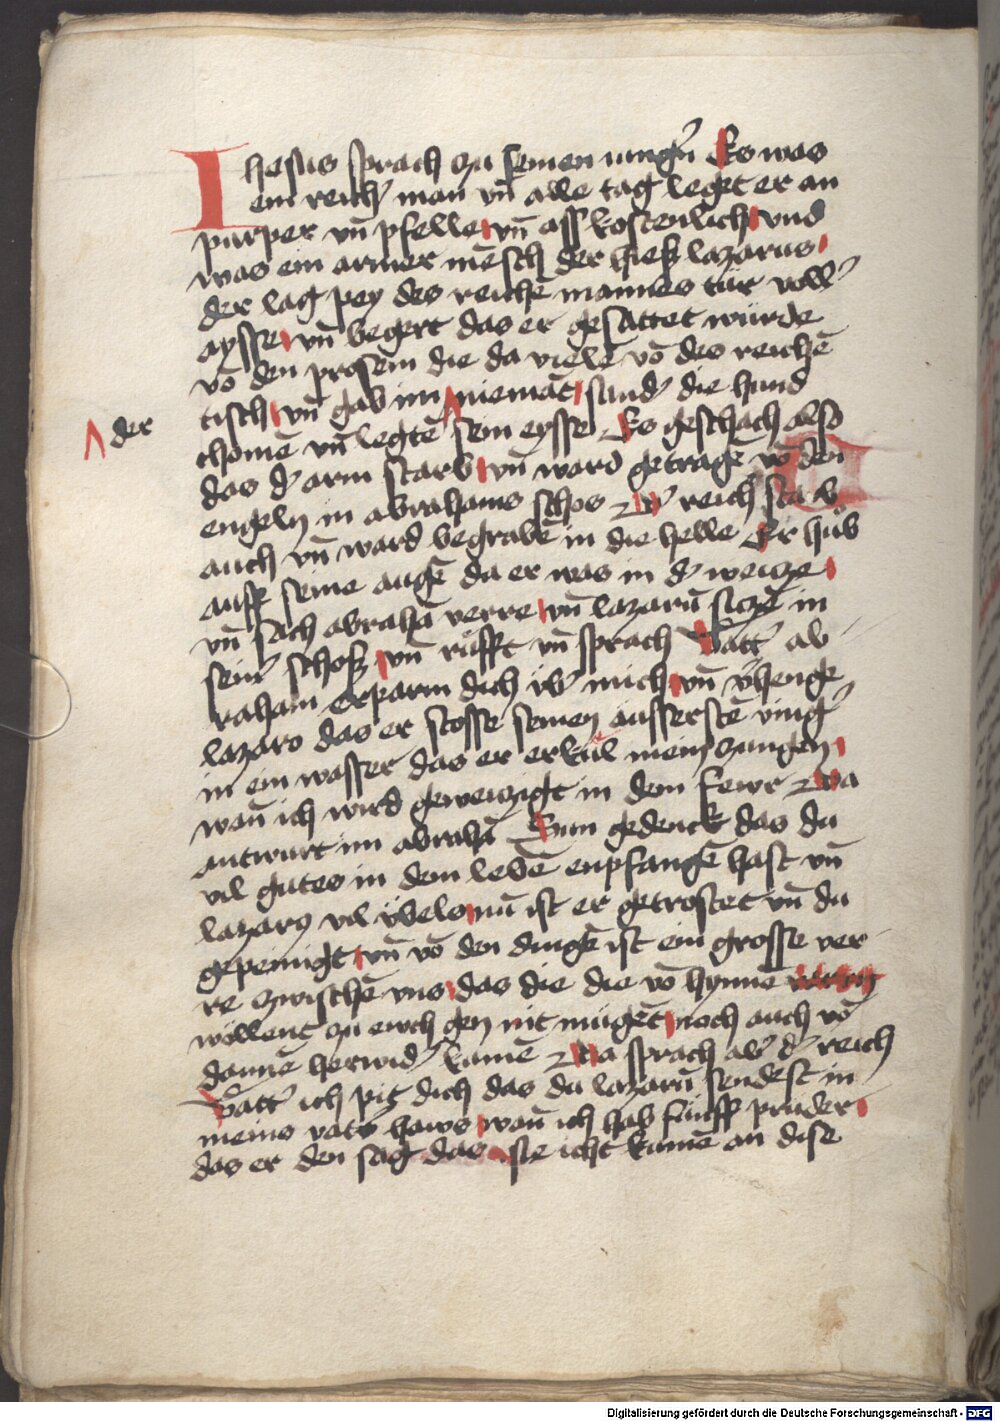 Ihesus sprach zu seinen iungern Es was
ein reicher man vnd alle tag leget er an
purper vñ pfelle vñ ass kostenlich vnd
was ein armer mẽsch der hiess lazarus
der lag pey des reichẽ mannes tür voller
aysse vñ begert das er gesattet würde
võ den prosem die da viele võ des reichẽ
tisch vñ gab im niemãt sunder die hund
der
chomẽ vñ legtẽ sein eysse Es geschach also
das der arm starb vñ ward getragẽ võ den
engeln in abrahams schos Der reich starb
auch vñ ward begrabẽ in die helle Er hůb
auff seine augẽ da er was in der weicze
vñ sach abrahã verre vñ lazarũ siczẽ in
seiner schoss vñ růfft vñ sprach Vatter ab
raham erparm dich vber mich vñ verhenge
lazaro das er stosse seinen aussersten vinger
in ein wasser das er erkül mein zungen
wañ ich wird geweiczigt in dem fewr Da
antwurt im abrahã Sun gedenck das du
vil gutes in dem lebẽ enpfangẽ hast vñ
lazarus vil vbels nũ ist er getrostet vñ du
gepeinigt vñ võ den dingẽ ist ein grosse ver
re zwischẽ vns das die die võ hynnẽ
wöllent zu ewch gen nit mügẽt noch auch võ
dannẽ herwider kumẽ Da sprach aber der reich
Vatter ich pit dich das du lazarũ sendest in
meins vaters haws wañ ich hab fünff prüder
das er den sag das sie icht kumẽ an dise
Digitalisierung gefördert durch die Deutsche Forschungsgemeinschaft - DFG